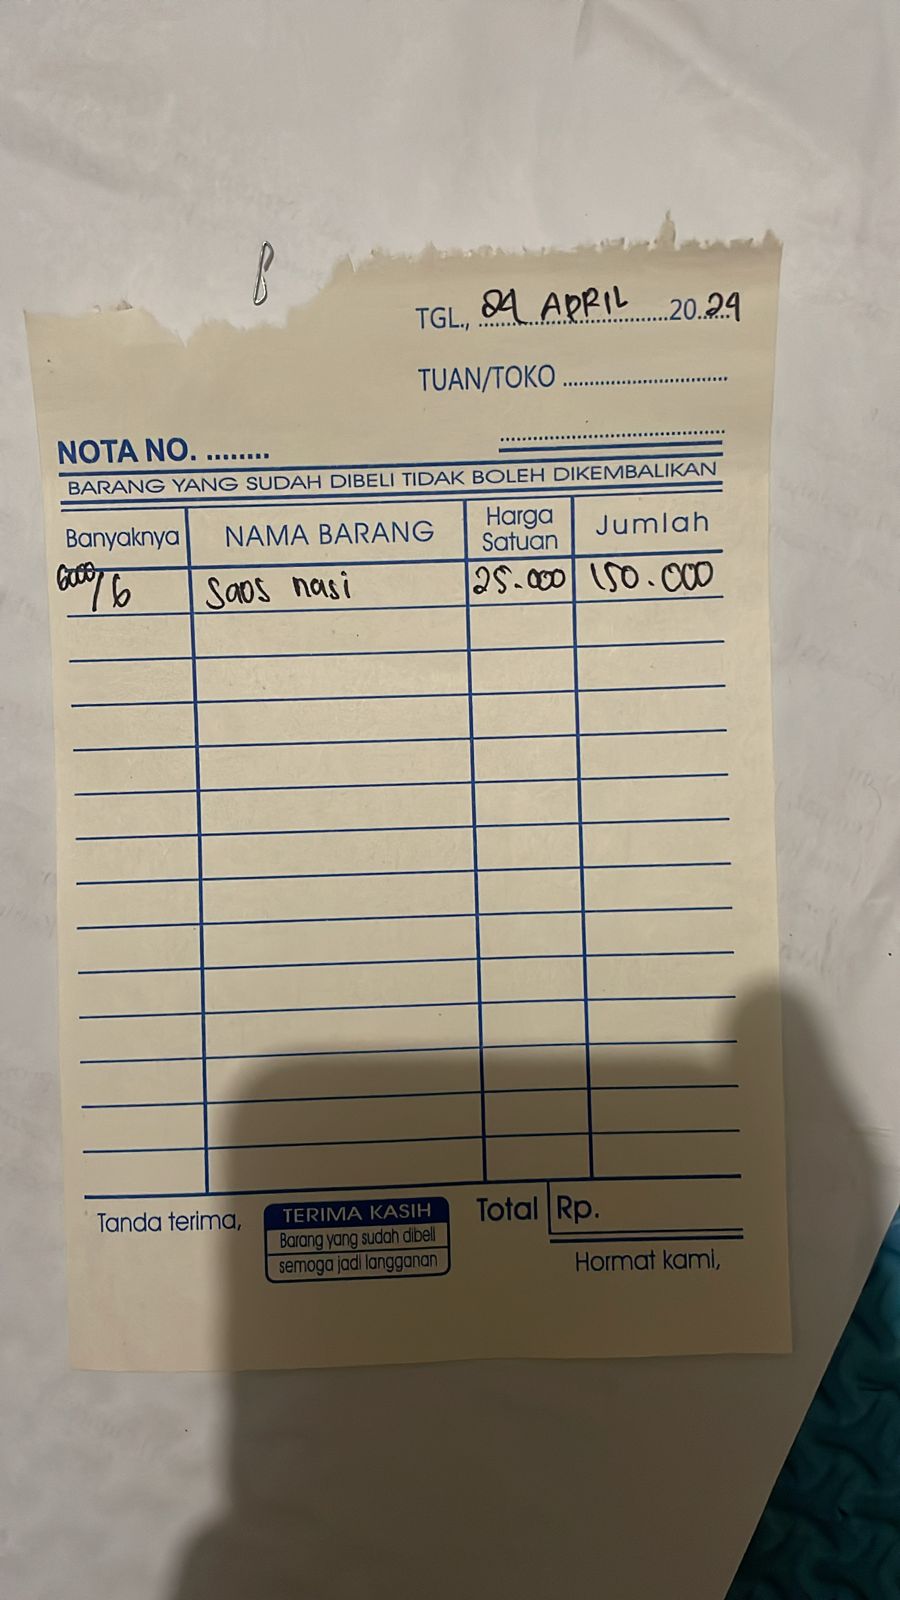 TGL., 24 APRIL 20.24
TUAN/TOKO
NOTA NO. ........
BARANG YANG SUDAH DIBELI TIDAK BOLEH DIKEMBALIKAN
Banyaknya NAMA BARANG Harga Satuan Jumlah
6000/6 Saos nasi 25.000 150.000
Tanda terima, TERIMA KASIH Total Rp.
Barang yang sudah dibeli
semoga jadi langganan
Hormat kami,